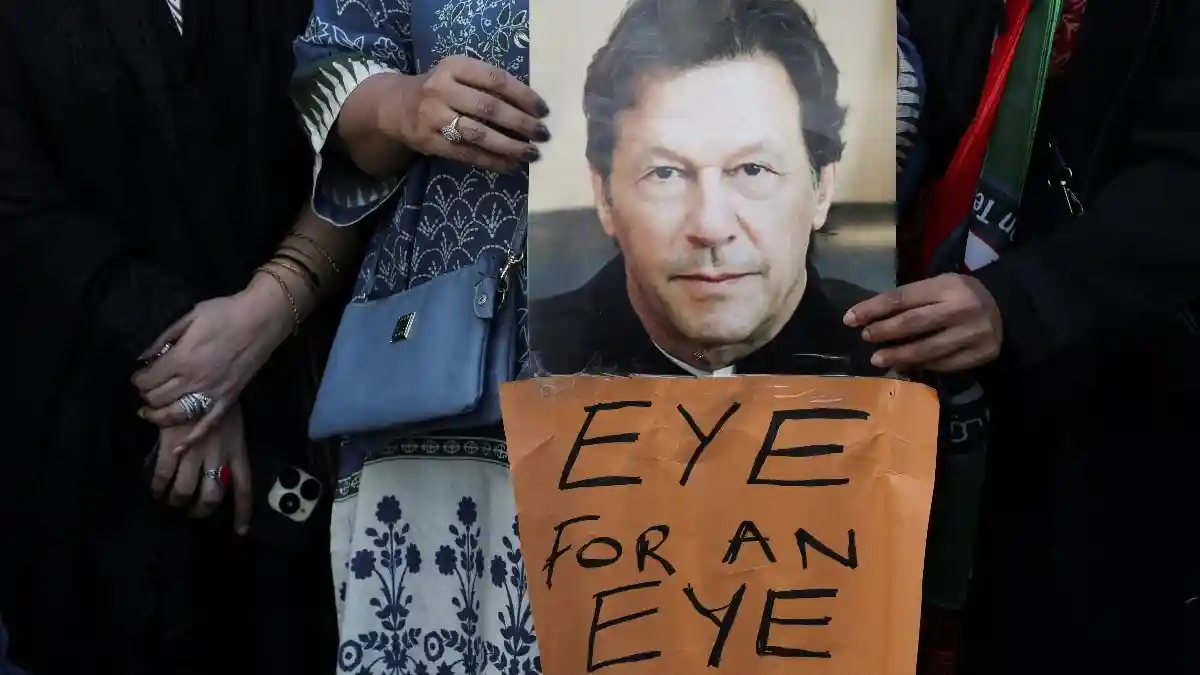 EYE
FOR AN
EYE